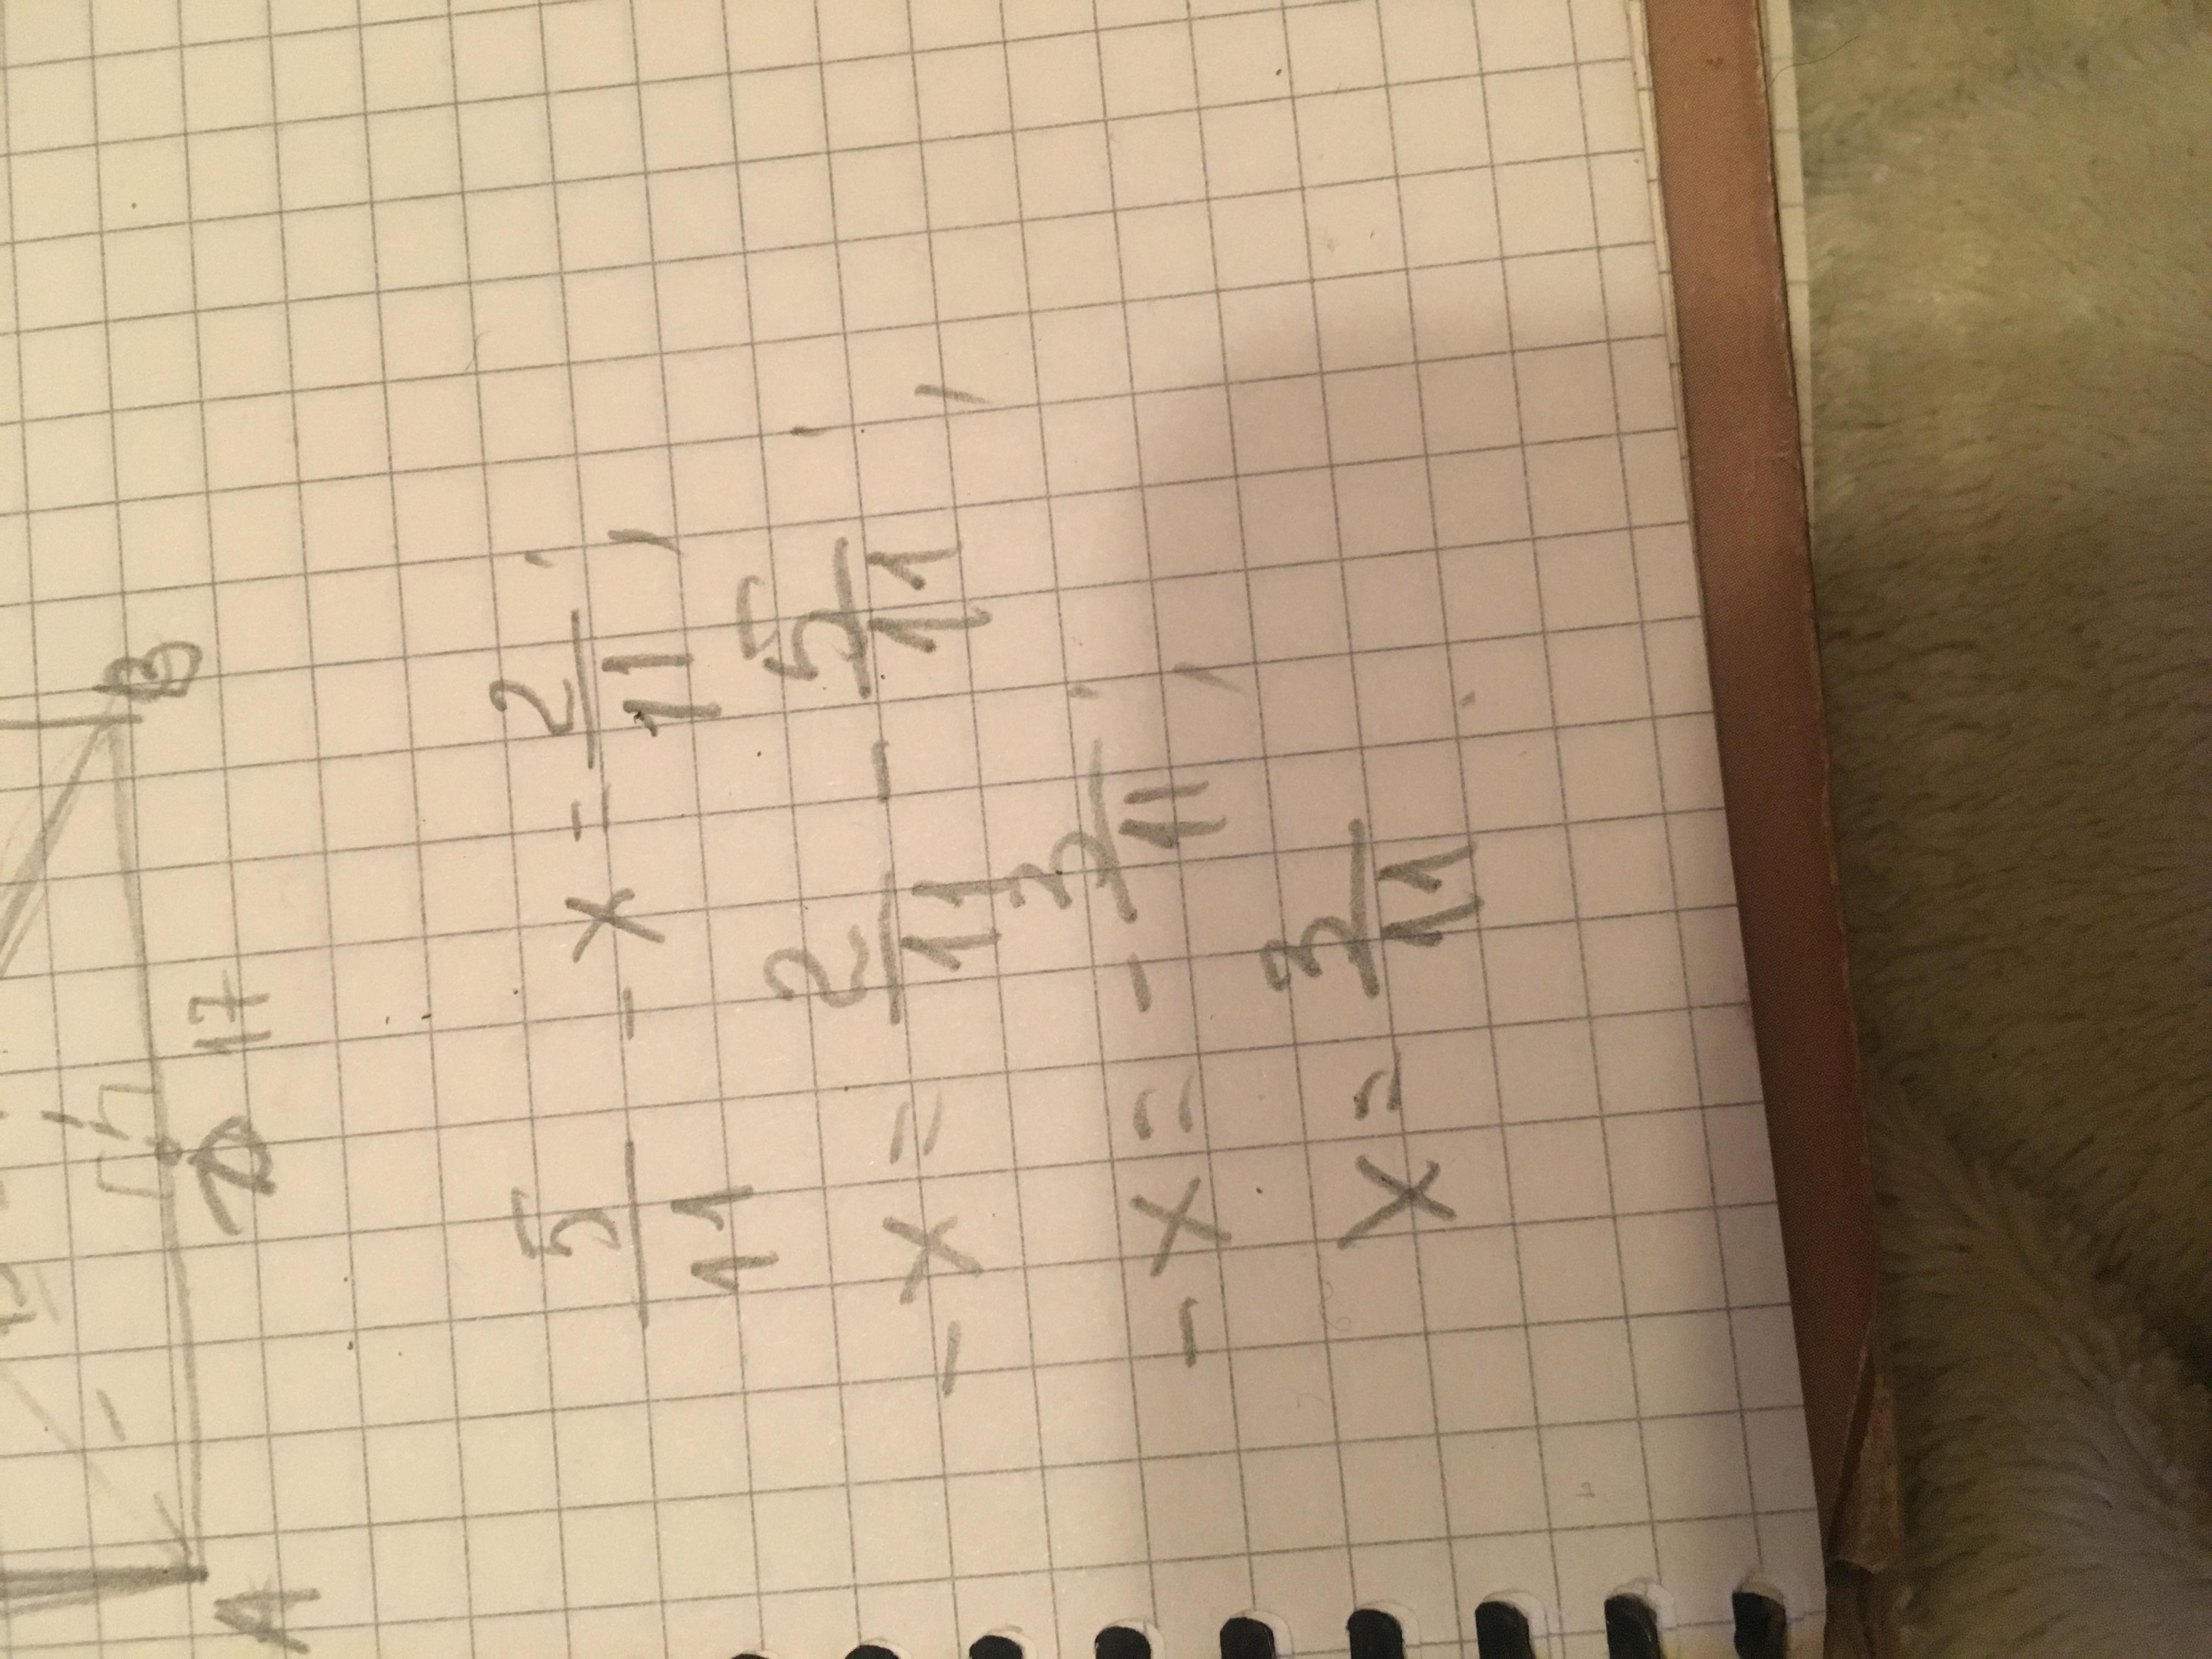 B
17
D
A
5/11 - x = 2/11;
-x = 2/11 - 5/11;
-x = -3/11;
x = 3/11.